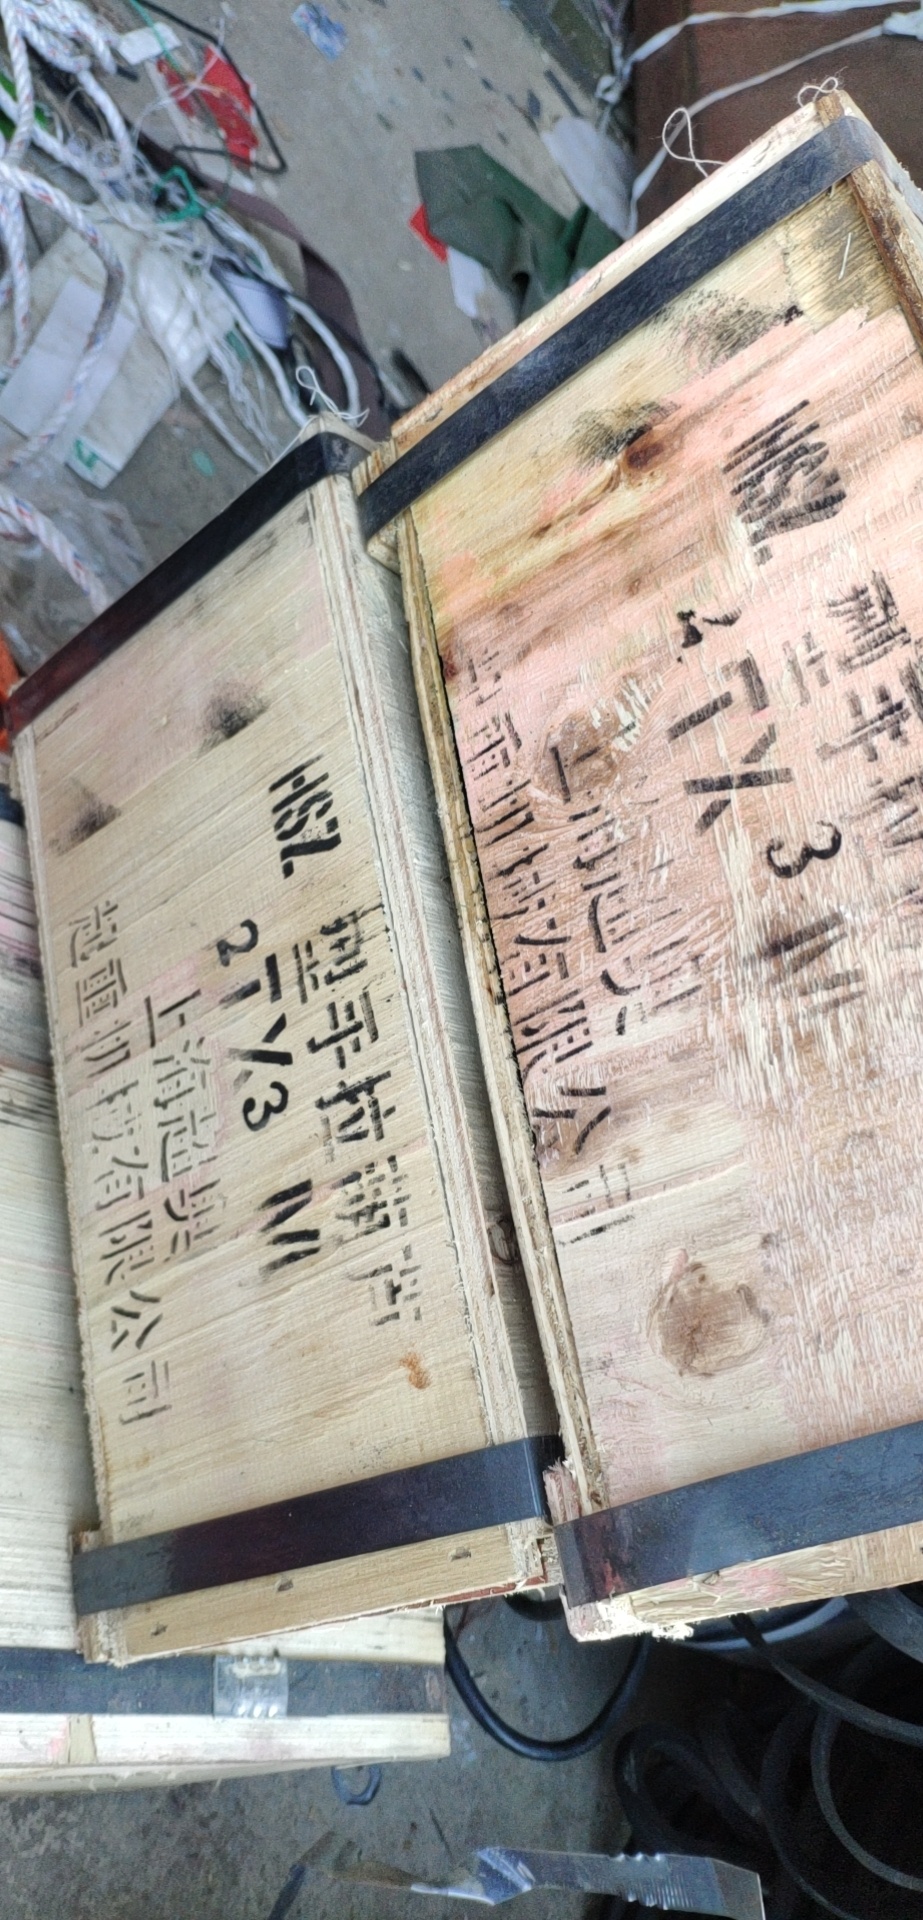 HSZ 型手拉葫芦
2T X 3 M
上海起
起重机械有限公司
HSZ 型手拉
2T X 3 M
上海起
起重机械有限公司